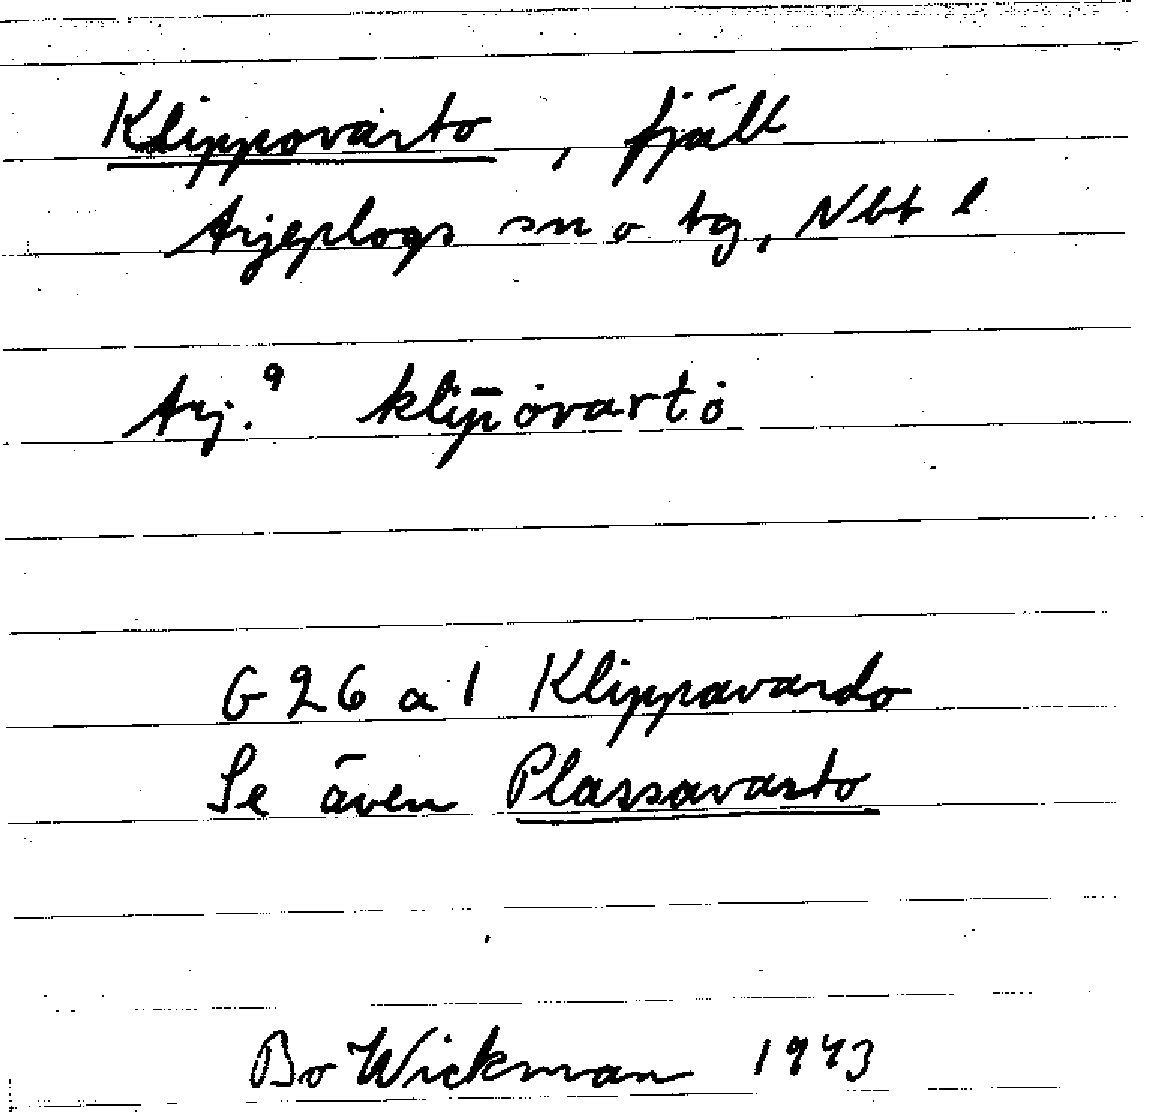 Klippovarto, fjäll
Arjeplogs sn o tg, Nbt l
Arj.⁹ klip̄ȯvartȯ
G 26 a 1 Klippavardo
Se även Plassavarto
Bo Wickman 1943